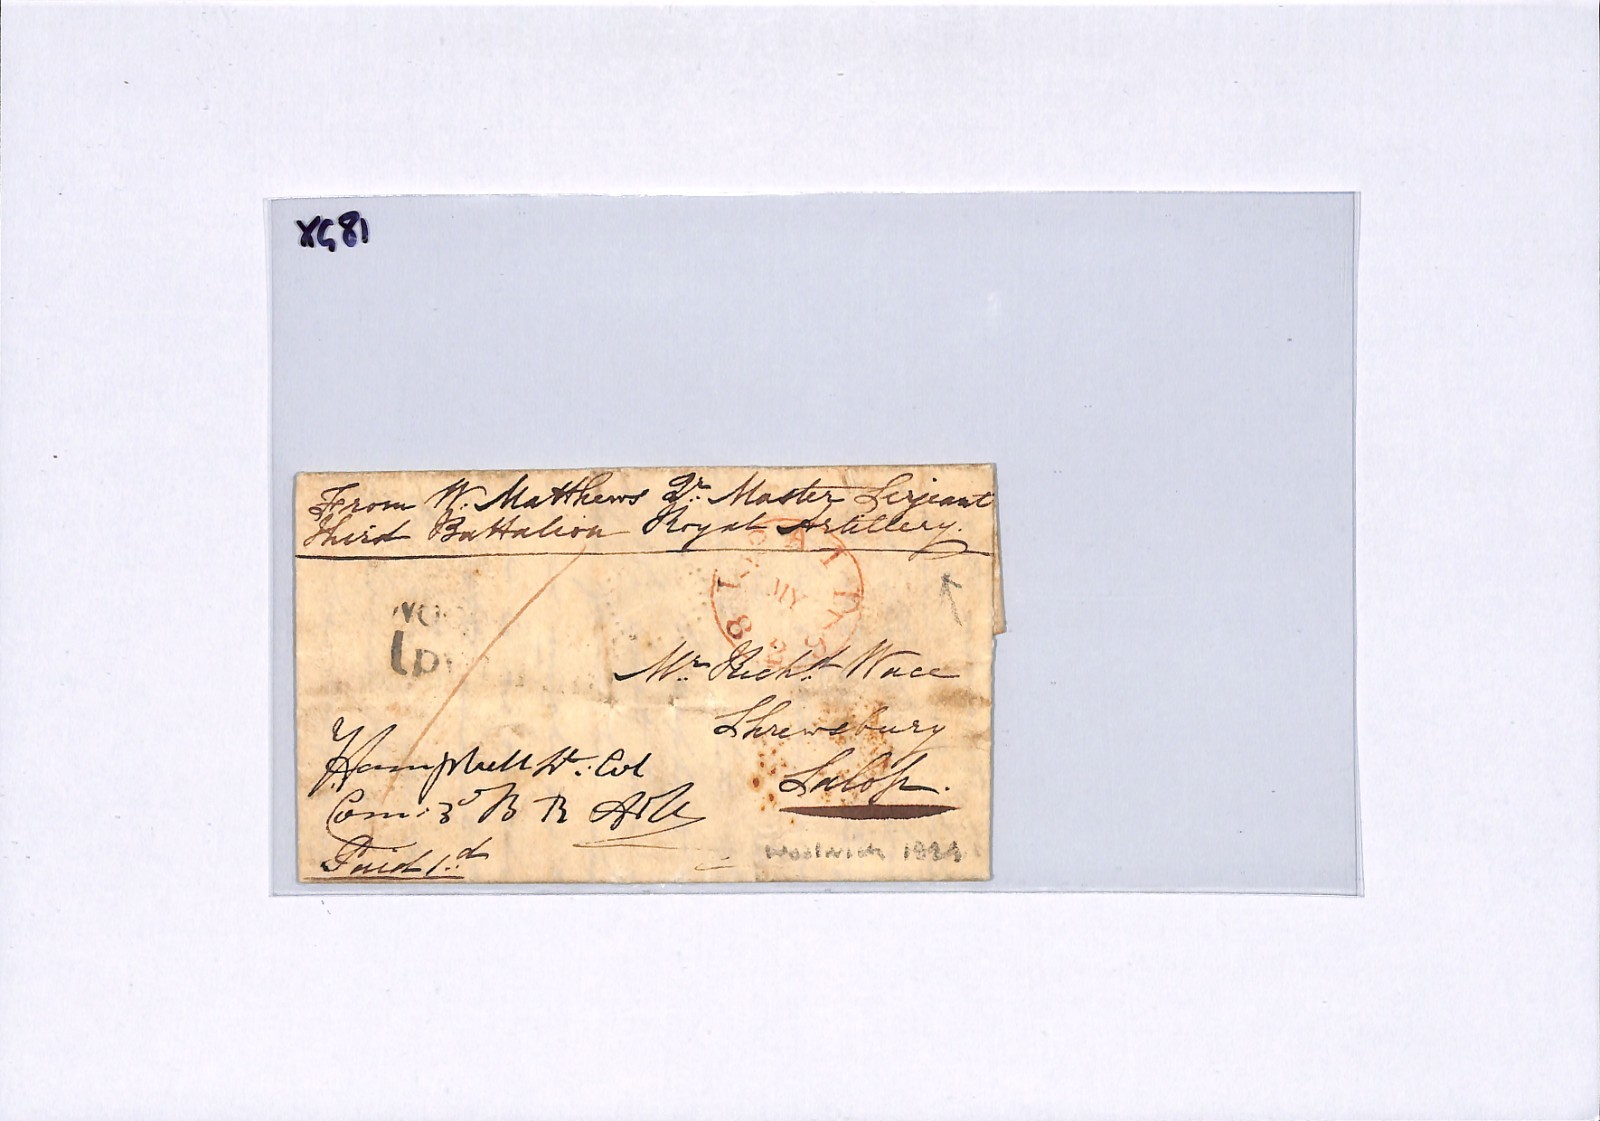 XG81
From W. Matthews Qr. Master Serjeant
Third Battalion Royal Artillery.
PAID
MY
18
Mr. Richd. Wace
Shrewsbury
Salop.
Campbell Lt: Col
Com: 3d B R Art
Paid 1d
Woolwich 1829